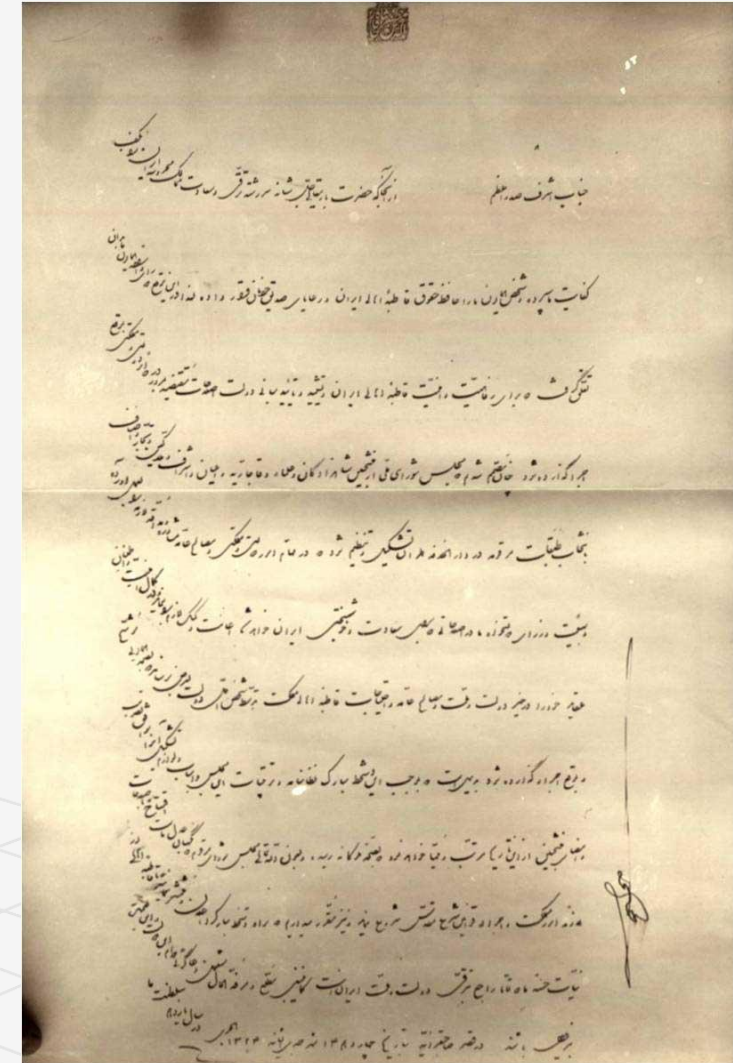 جناب اشرف صدراعظم از آنجا که حضرت باریتعالی جل شأنه سررشته ترقی و سعادت ممالک محروسه ایران را بکف
کفایت ما سپرده و شخص همایون ما را حافظ حقوق قاطبه اهالی ایران و رعایای صدیق خودمان قرار داده لهذا در این موقع که رای همایون ما بدان
تعلق گرفت که برای رفاهیت و امنیت قاطبه اهالی ایران و تشیید و تأیید مبانی دولت اصلاحات مقتضیه بمرور در دوایر دولتی و مملکتی بموقع
اجرا گذارده شود چنان مصمم شدیم که مجلس شورای ملی از منتخبین شاهزادگان و علماء و قاجاریه و اعیان و اشراف و ملاکین و تجار و اصناف
بانتخاب طبقات مرقومه در دارالخلافه طهران تشکیل و تنظیم شود که در مهام امور دولتی و مملکتی و مصالح عامه مشاوره و مداقه لازمه را بعمل آورده
و بهیئت وزرای دولتخواه ما در اصلاحاتی که برای سعادت و خوشبختی ایران خواهد شد اعانت و کمک لازم را بنماید و در کمال امنیت و اطمینان
عقاید خودرا در خیر دولت و ملت و مصالح عامه و احتیاجات قاطبه اهالی مملکت بتوسط شخص اول دولت بعرض برساند که بصحه همایونی موشح
و بموقع اجرا گذارده شود بدیهی است که بموجب این دستخط مبارک نظامنامه و ترتیبات این مجلس و اسباب و لوازم تشکیل آنرا موافق تصویب
و امضای منتخبین از این تاریخ مرتب و مهیا خواهد نمود که بصحه ملوکانه رسیده و بعون الله تعالی مجلس شورای مرقوم که نگهبان عدل ماست افتتاح و باصلاحات
لازمه امور مملکت و اجراء قوانین شرع مقدس شروع نماید و نیز مقرر میداریم که سواد دستخط مبارک را اعلان و منتشر نمایید تا قاطبه اهالی از
نیات حسنه ما که تماما راجع بترقی دولت و ملت ایران است کماینبغی مطلع و مرفه الحال مشغول دعاگوئی دوام این دولت و این نعمت بی زوال
باشند در قصر صاحبقرانیه بتاریخ چهاردهم شهر جمادی الثانیه ۱۳۲۴ هجری در سال یازدهم سلطنت ما